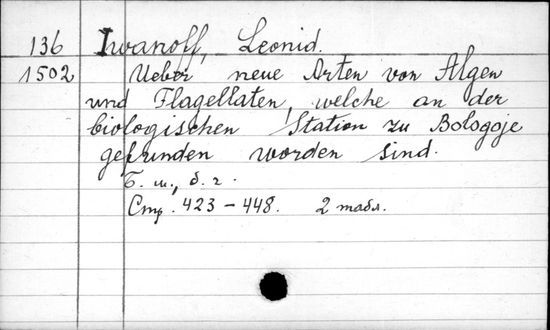 136 Iwanoff, Leonid.
1502 Ueber neue Arten von Algen
und Flagellaten, welche an der
biologischen Station zu Bologoje
gefunden worden sind.
Б. м., б. г.
Стр. 423-448. 2 табл.